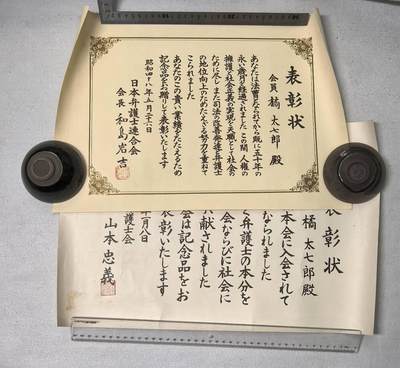 表彰状
会員 橘 太七郎 殿
あなたは法曹になられてから既に五十年の
永い歳月を経過されました この間 人権の
擁護と社会正義の実現を天職として社会の
ために尽し また司法の改善発達と弁護士
の地位向上のためたゆまざる努力を重ねて
こられました
あなたのこの貴い業績をたたえるため
記念品をお贈りして表彰いたします
昭和四十八年五月二十六日
日本弁護士連合会
会長 和島岩吉
表彰状
橘 太七郎 殿
本会に入会されて
なられました
と弁護士の本分を
会ならびに社会に
献されました
会は記念品をお
表彰いたします
十一月八日
護士会
山本忠義